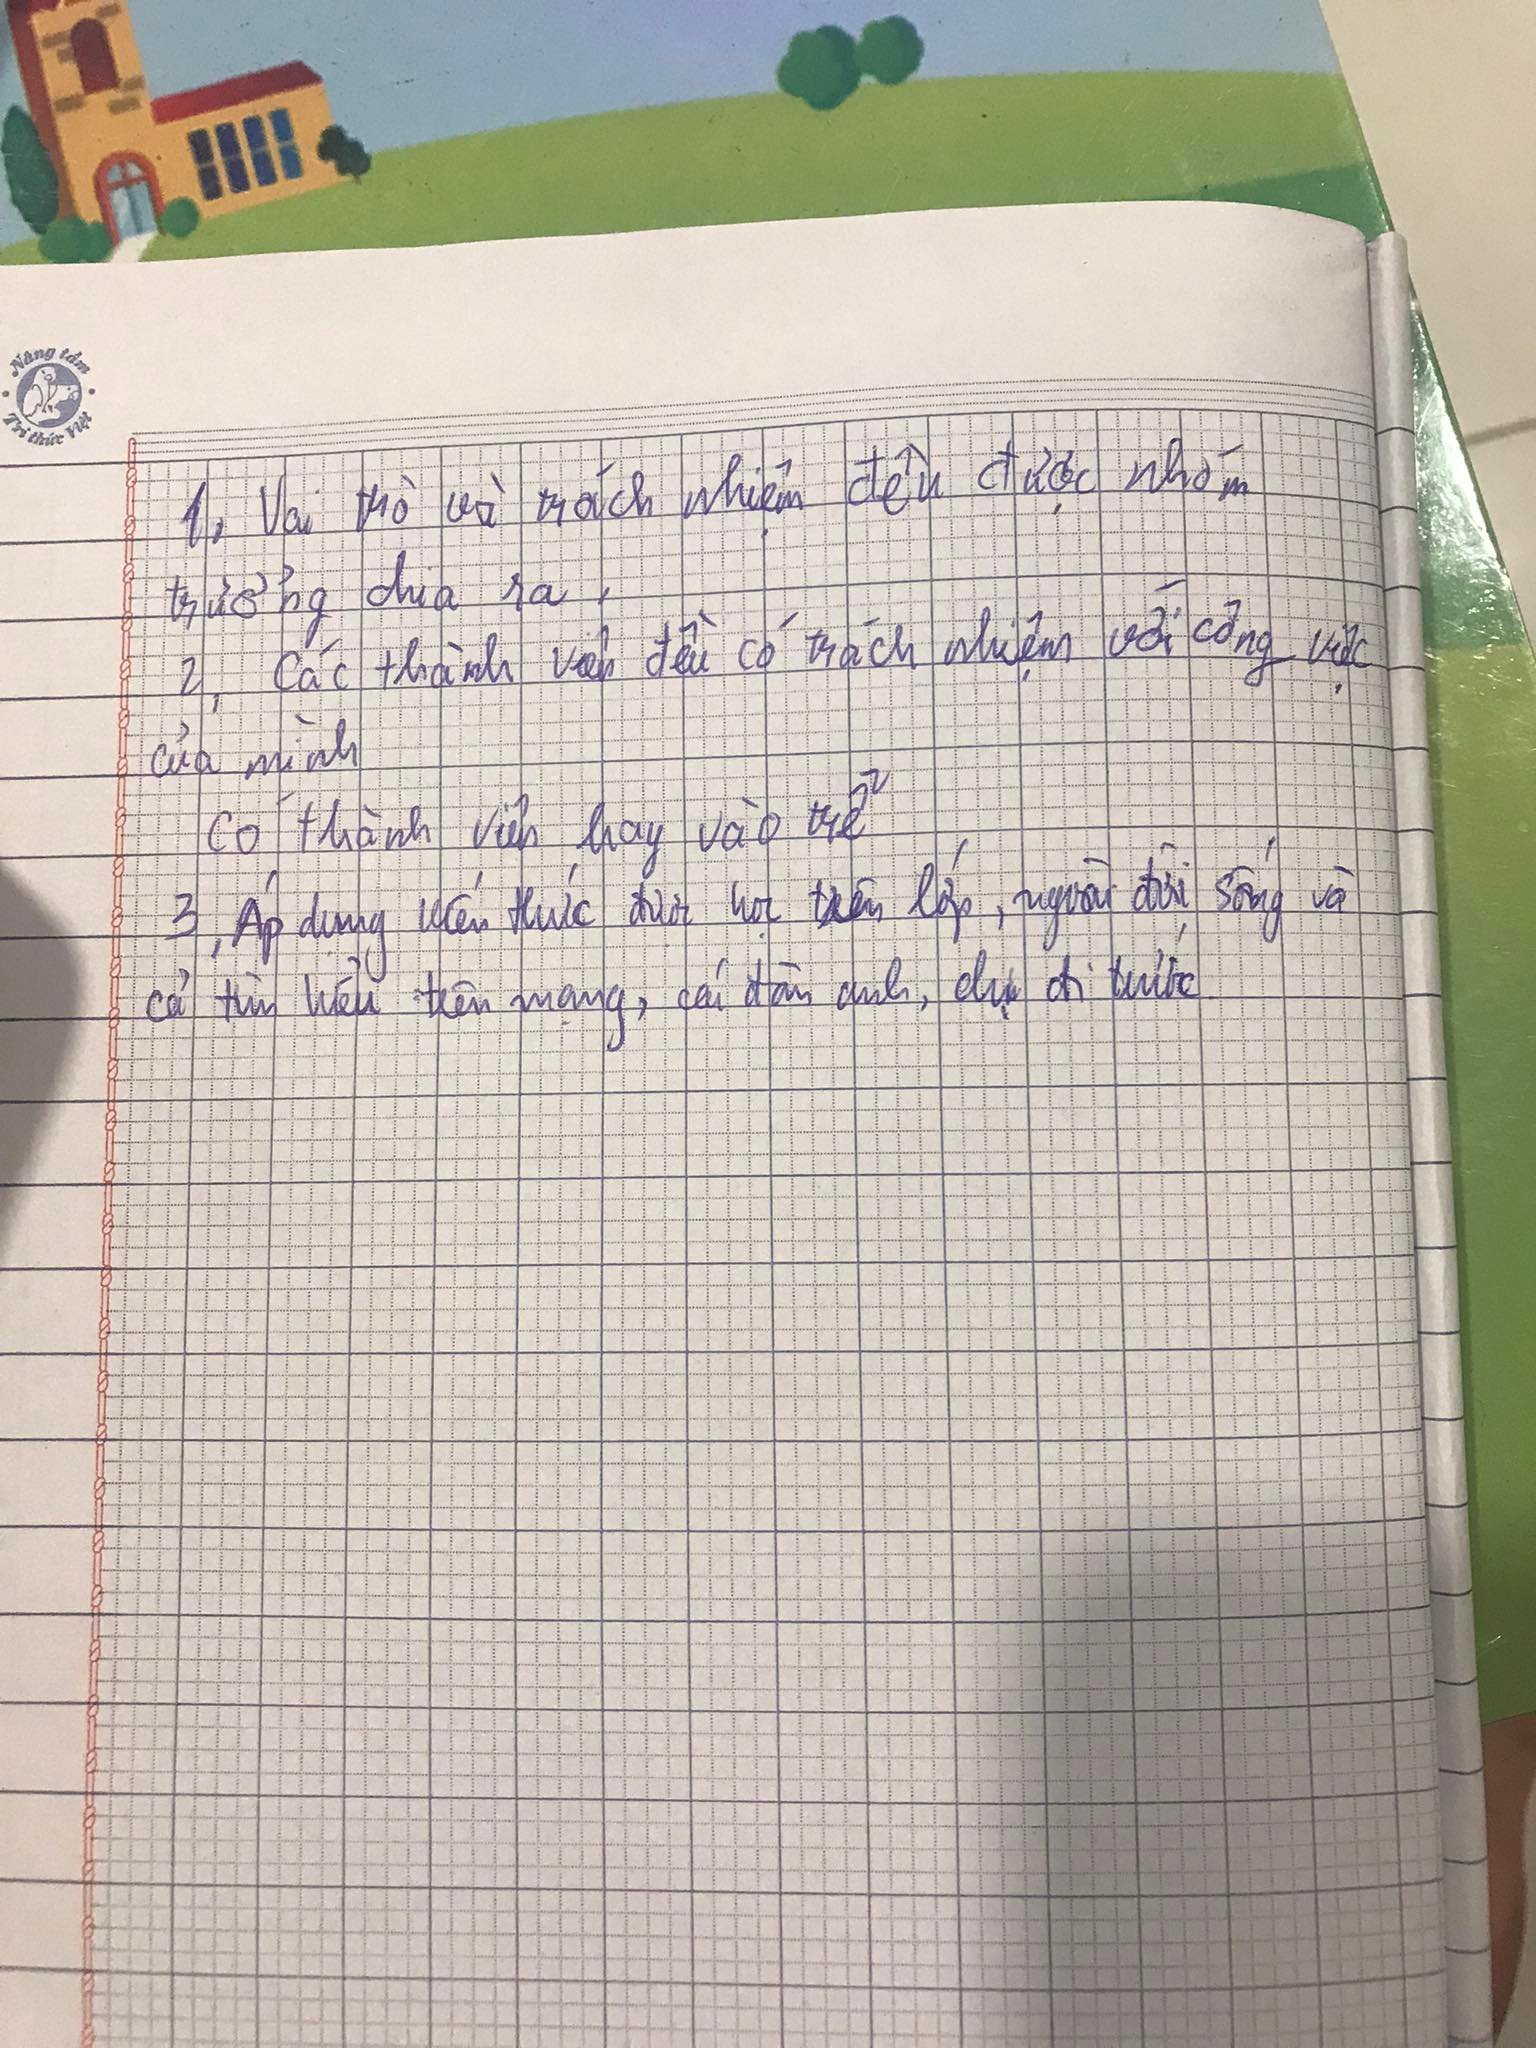 Nâng tầm
Tri thức Việt
1, Vai trò và trách nhiệm đều được nhóm
trưởng chia ra,
2, Các thành viên đều có trách nhiệm với công việc
của mình
Có thành viên hay vào trễ
3, Áp dụng kiến thức được học trên lớp, người đời sống và
cả tìm hiểu trên mạng, các đàn anh, chị đi trước